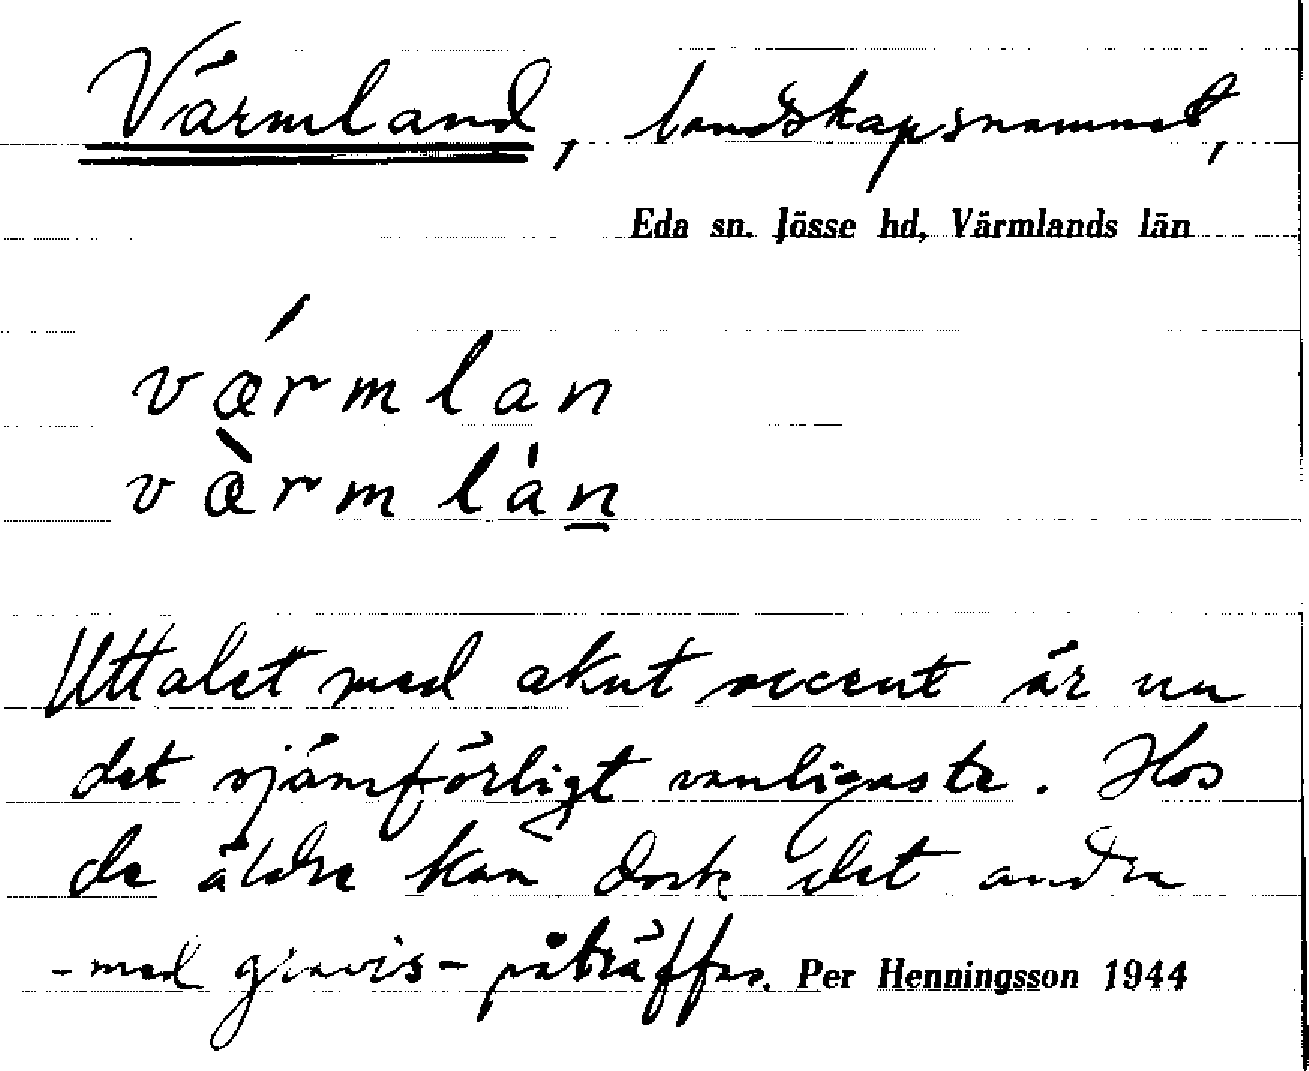 Värmland, landskapsnamnet,
Eda sn. Jösse hd, Värmlands län
vǽrmlan
væ̀rmla̍n̲
Uttalet med akut accent är nu
det ojämförligt vanligaste. Hos
de äldre kan dock det andra
- med gravis - påträffas. Per Henningsson 1944